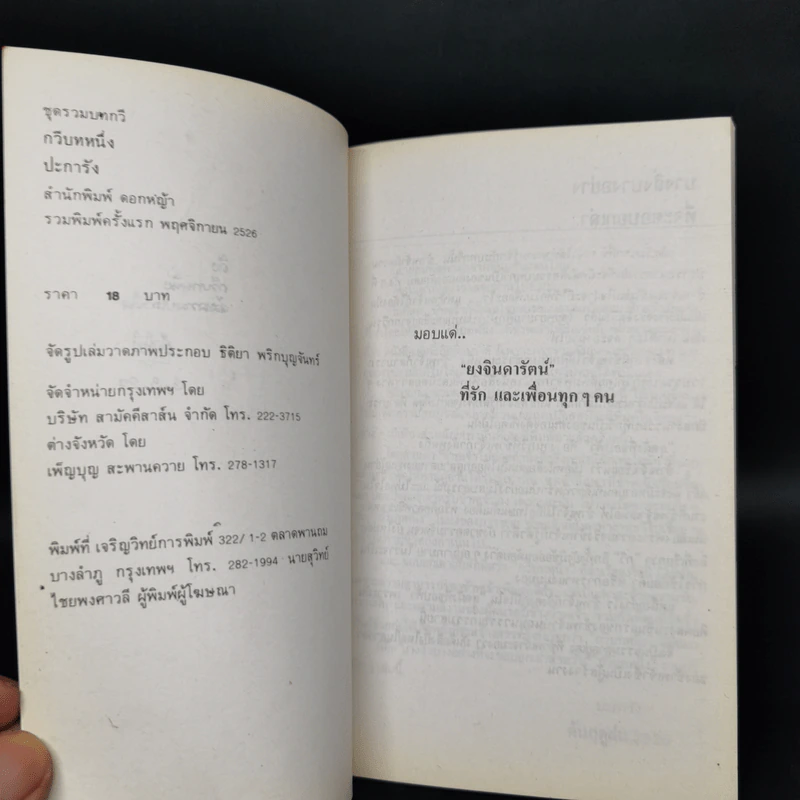 ชุดรวมบทกวี
กวีบทหนึ่ง
ปะการัง
สำนักพิมพ์ ดอกหญ้า
รวมพิมพ์ครั้งแรก พฤศจิกายน 2526
ราคา 18 บาท
จัดรูปเล่มวาดภาพประกอบ ธิติยา พริกบุญจันทร์
จัดจำหน่ายกรุงเทพฯ โดย
บริษัท สามัคคีสาส์น จำกัด โทร. 222-3715
ต่างจังหวัด โดย
เพ็ญบุญ สะพานควาย โทร. 278-1317
พิมพ์ที่ เจริญวิทย์การพิมพ์ 322/1-2 ตลาดพานถม
บางลำภู กรุงเทพฯ โทร. 282-1994 นายสุวิทย์
ไชยพงศาวลี ผู้พิมพ์ผู้โฆษณา
มอบแด่..
"ยงจินดารัตน์"
ที่รัก และเพื่อนทุก ๆ คน